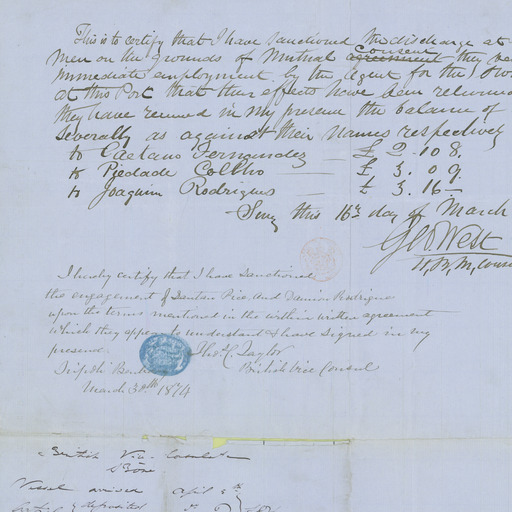 This is to certify that I have sanctioned the discharge at
men on the grounds of Mutual agreement consent they
immediate employment by the agent for the
at this Port that their effects have been returned
they have received in my presence the balance of
severally as against their names respectively
to Caetano Fernandez — £ 2. 10 8.
to Piedade Collho — £ 3. 0 9.
to Joaquim Rodrigues — £ 3. 16 —
Suez this 16th day of March
Geo West
H, B, M, Consul
I hereby certify that I have Sanctioned
the engagement of and Rodrigue
upon the terms mentioned in the within written agreement
which they appear to understand & have signed in my
presence.
Thos. C. Taylor
British Vice Consul
March 30th 1874
British Vice Consulate
Bône.
Vessel arrived April
deposited